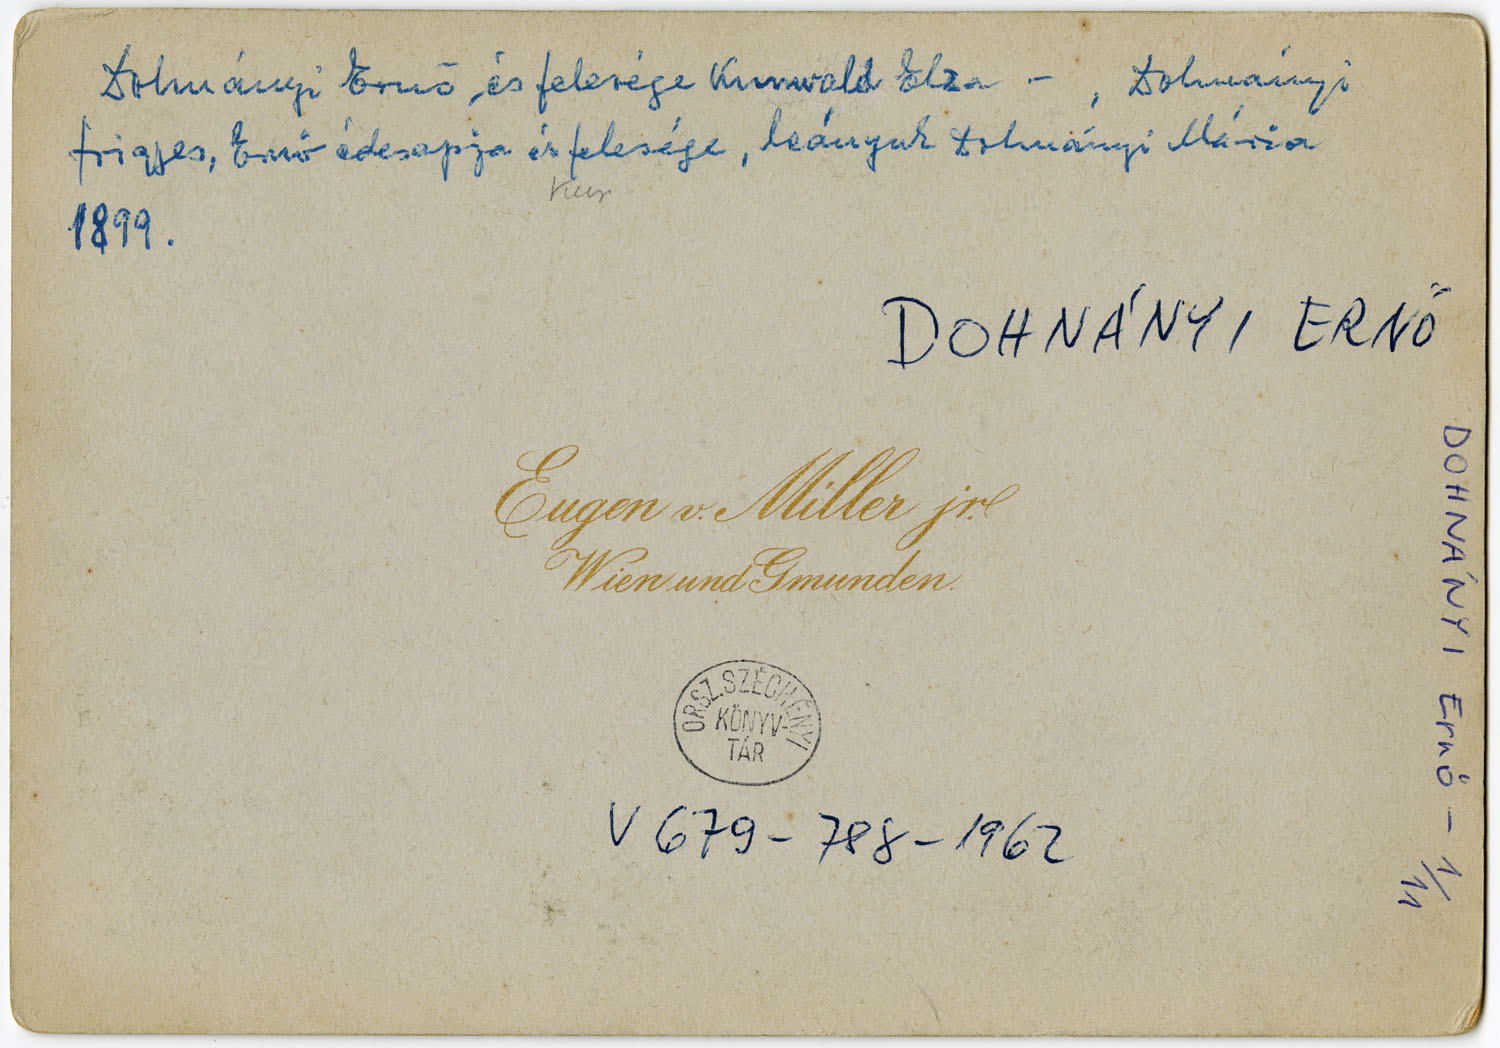 Dohnányi Ernő, és felesége Kunwald Elza – , Dohnányi
Frigyes, Ernő édesapja és felesége, leányuk Dohnányi Mária
1899.
DOHNÁNYI ERNŐ
Eugen v. Miller jr.
Wien und Gmunden.
ORSZ. SZÉCHÉNYI
KÖNYV-
TÁR
V 679 – 788 – 1962
DOHNÁNYI Ernő – 1/11